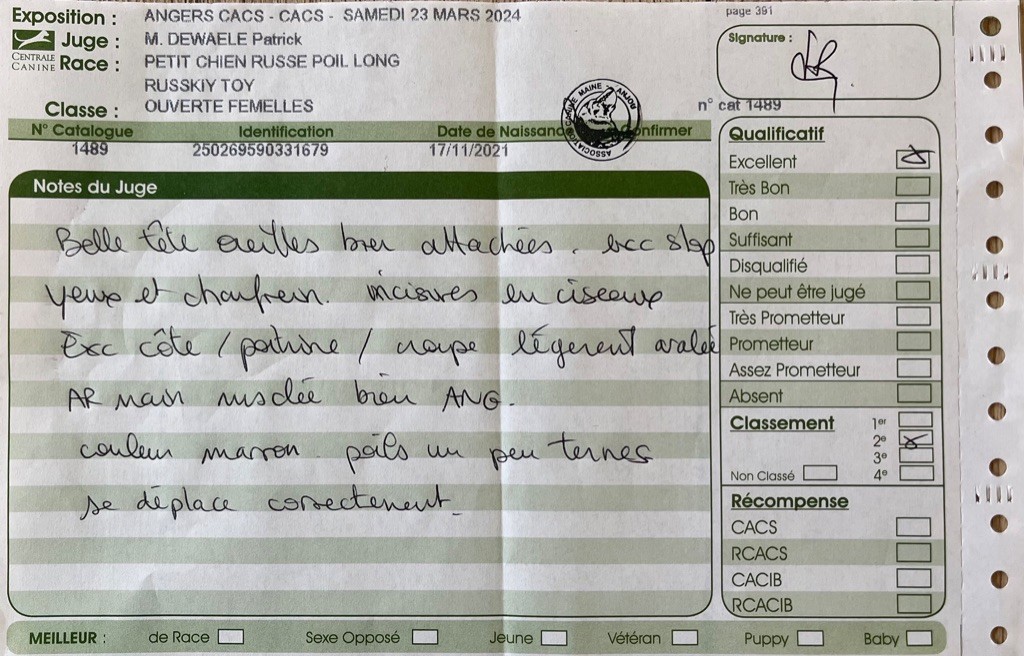 Exposition : ANGERS CACS - CACS - SAMEDI 23 MARS 2024
page 391
Juge : M. DEWAELE Patrick
Signature :
CENTRALE CANINE
Race : PETIT CHIEN RUSSE POIL LONG
RUSSKIY TOY
Classe : OUVERTE FEMELLES
n° cat 1489
ASSOCIATION CANINE MAINE ANJOU
N° Catalogue Identification Date de Naissanc onfirmer
1489 250269590331679 17/11/2021
Notes du Juge
Belle tête oreilles bien attachées. exc stop
yeux et chanfrein. incisives en ciseaux
Exc côte / poitrine / croupe légerent avalée
AR main musclée bien ANG.
couleur marron. poils un peu ternes
se déplace correctement_
Qualificatif
Excellent
Très Bon
Bon
Suffisant
Disqualifié
Ne peut être jugé
Très Prometteur
Prometteur
Assez Prometteur
Absent
Classement 1er
2e
3e
Non Classé 4e
Récompense
CACS
RCACS
CACIB
RCACIB
MEILLEUR : de Race Sexe Opposé Jeune Vétéran Puppy Baby